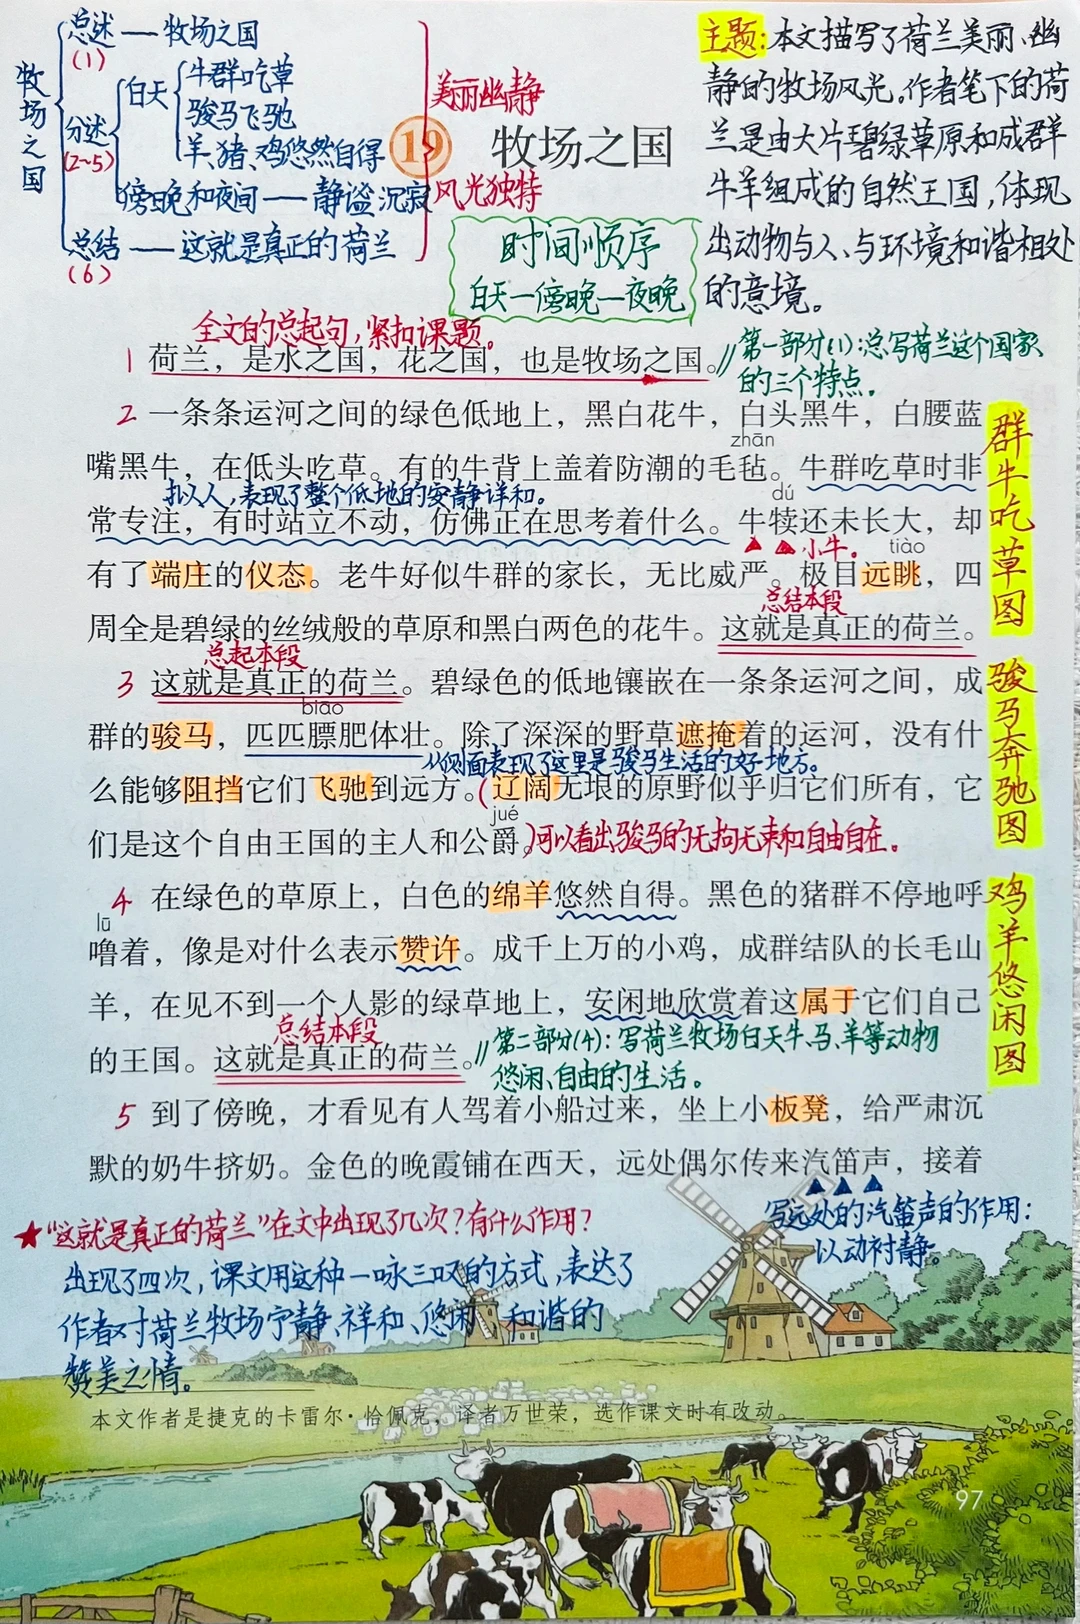 牧场之国
总述 — 牧场之国
(1)
分述
(2~5)
白天
牛群吃草
骏马飞驰
羊、猪、鸡悠然自得
傍晚和夜间 —— 静谧沉寂
总结 — 这就是真正的荷兰
(6)
美丽幽静
风光独特
19 牧场之国
时间顺序
白天—傍晚—夜晚
主题:本文描写了荷兰美丽、幽
静的牧场风光。作者笔下的荷
兰是由大片碧绿草原和成群
牛羊组成的自然王国,体现
出动物与人、与环境和谐相处
的意境。
全文的总起句,紧扣课题。
1 荷兰，是水之国，花之国，也是牧场之国。
第一部分(1):总写荷兰这个国家
的三个特点。
2 一条条运河之间的绿色低地上，黑白花牛，白头黑牛，白腰蓝
zhān
嘴黑牛，在低头吃草。有的牛背上盖着防潮的毛毡。牛群吃草时非
拟人,表现了整个低地的安静详和。
dú
常专注，有时站立不动，仿佛正在思考着什么。牛犊还未长大，却
小牛。
tiào
有了端庄的仪态。老牛好似牛群的家长，无比威严。极目远眺，四
总结本段
周全是碧绿的丝绒般的草原和黑白两色的花牛。这就是真正的荷兰。
总起本段
3 这就是真正的荷兰。碧绿色的低地镶嵌在一条条运河之间，成
biāo
群的骏马，匹匹膘肥体壮。除了深深的野草遮掩着的运河，没有什
从侧面表现了这里是骏马生活的好地方。
么能够阻挡它们飞驰到远方。(辽阔无垠的原野似乎归它们所有，它
jué
们是这个自由王国的主人和公爵。)可以看出骏马的无拘无束和自由自在。
4 在绿色的草原上，白色的绵羊悠然自得。黑色的猪群不停地呼
lū
噜着，像是对什么表示赞许。成千上万的小鸡，成群结队的长毛山
羊，在见不到一个人影的绿草地上，安闲地欣赏着这属于它们自己
总结本段
的王国。这就是真正的荷兰。
第二部分(4):写荷兰牧场白天牛、马、羊等动物
悠闲、自由的生活。
5 到了傍晚，才看见有人驾着小船过来，坐上小板凳，给严肃沉
默的奶牛挤奶。金色的晚霞铺在西天，远处偶尔传来汽笛声，接着
群牛吃草图
骏马奔驰图
鸡羊悠闲图
写远处的汽笛声的作用:
以动衬静。
★“这就是真正的荷兰”在文中出现了几次?有什么作用?
出现了四次,课文用这种一咏三叹的方式,表达了
作者对荷兰牧场宁静、祥和、悠闲、和谐的
赞美之情。
本文作者是捷克的卡雷尔·恰佩克，译者万世荣，选作课文时有改动。
97